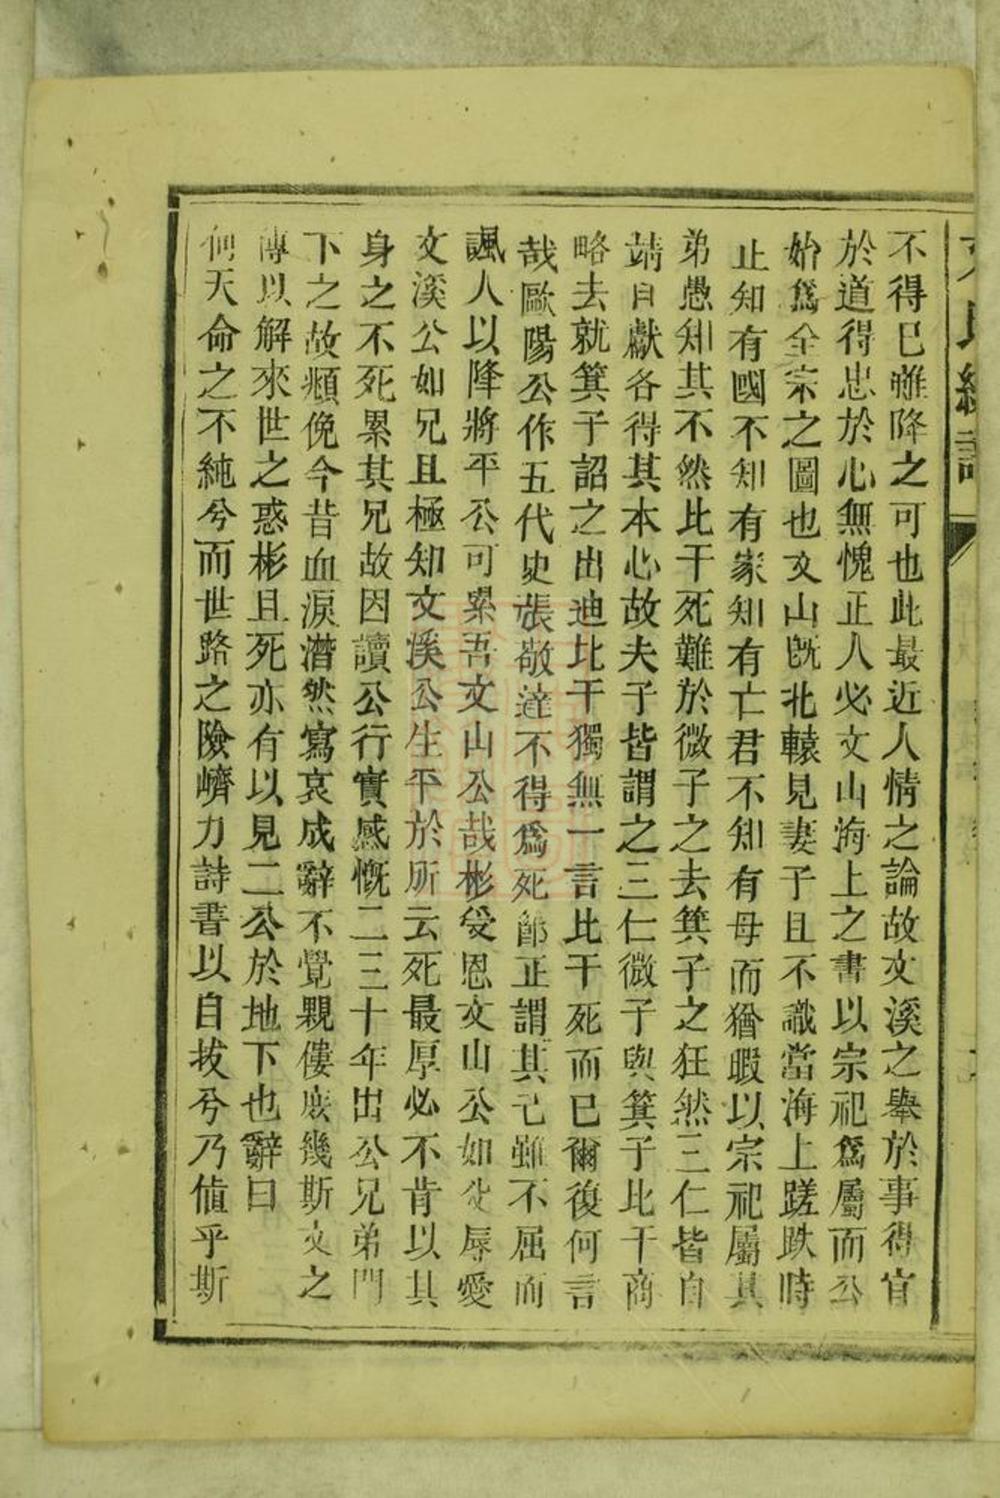 不得已雖降之可也此最近人情之論故文溪之舉於事得宜
於道得忠於心無愧正人必文山海上之書以宗祀爲屬而公
始爲全宗之圖也文山旣北轅見妻子且不識當海上蹉跌時
止知有國不知有家知有亡君不知有母而猶暇以宗祀屬其
弟愚知其不然比干死難於微子之去箕子之狂然三仁皆自
靖自獻各得其本心故夫子皆謂之三仁微子與箕子比干商
略去就箕子詔之出迪比干獨無一言比干死而已爾復何言
哉歐陽公作五代史張敬達不得爲死節正謂其己雖不屈而
諷人以降將平公可累吾文山公哉彬受恩文山公如此辱愛
文溪公如兄且極知文溪公生平於所云死最厚必不肯以其
身之不死累其兄故因讀公行實感慨二三十年出公兄弟門
下之故頫俛今昔血淚潛然寫哀成辭不覺覼僂庶幾斯文之
傳以解來世之惑彬且死亦有以見二公於地下也辭曰
何天命之不純兮而世路之險巇力詩書以自拔兮乃値乎斯